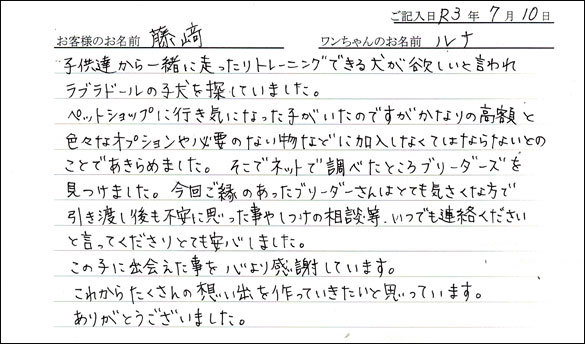 ご記入日 R3 年 7 月 10 日
お客様のお名前 藤﨑 ワンちゃんのお名前 ルナ
子供達から一緒に走ったりトレーニングできる犬が欲しいと言われ
ラブラドールの子犬を探していました。
ペットショップに行き気になった子がいたのですがかなりの高額と
色々なオプションや必要のない物などに加入しなくてはならないとの
ことであきらめました。そこでネットで調べたところブリーダーズを
見つけました。今回ご縁のあったブリーダーさんはとても気さくな方で
引き渡し後も不安に思った事やしつけの相談等、いつでも連絡ください
と言ってくださりとても安心しました。
この子に出会えた事を心より感謝しています。
これからたくさんの想い出を作っていきたいと思っています。
ありがとうございました。